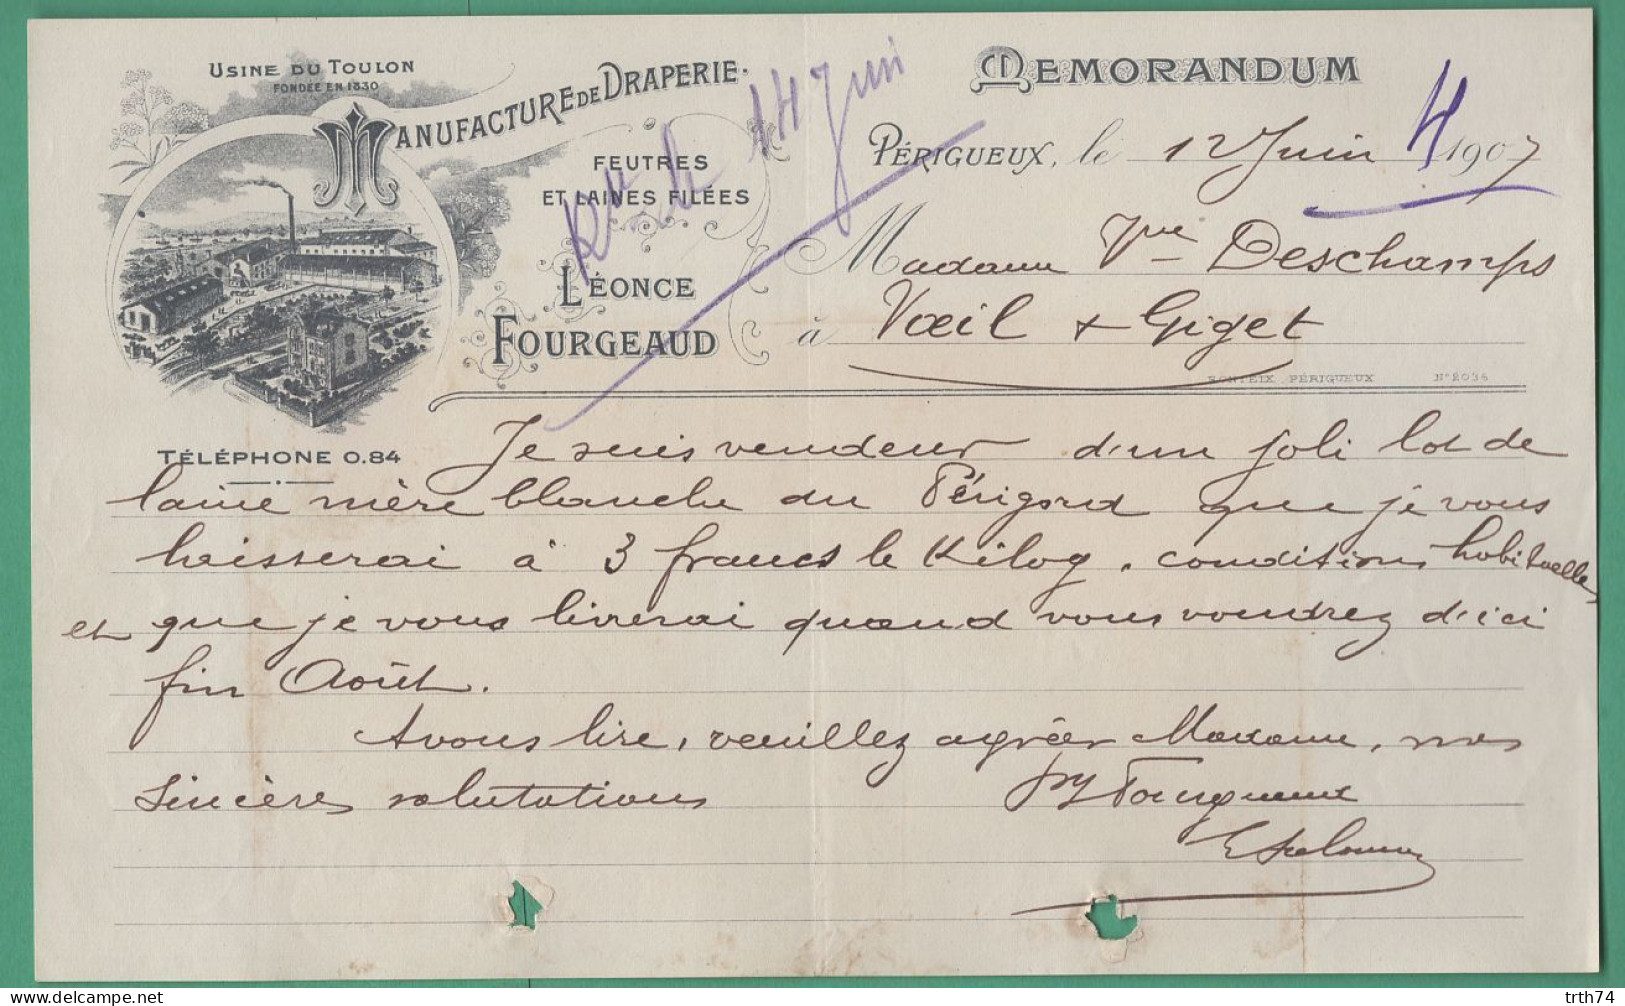 Usine du Toulon
Fondée en 1830
Manufacture de Draperie.
Feutres
et Laines Filées
Léonce
Fourgeaud
Téléphone 0.84
Memorandum
Rdu le 14 Juin
Périgueux, le 12 Juin 1907
Madame Vve Deschamps
à Vœil & Giget
Fonteix, Périgueux No 2036
Je suis vendeur d'un joli lot de
laine mère blanche du Périgord que je vous
laisserai à 3 francs le Kilog, conditions habituelles
et que je vous livrerai quand vous voudrez d'ici
fin Août.
A vous lire, veuillez agréer Madame, nos
sincères salutations
Fourgeaud
trth74